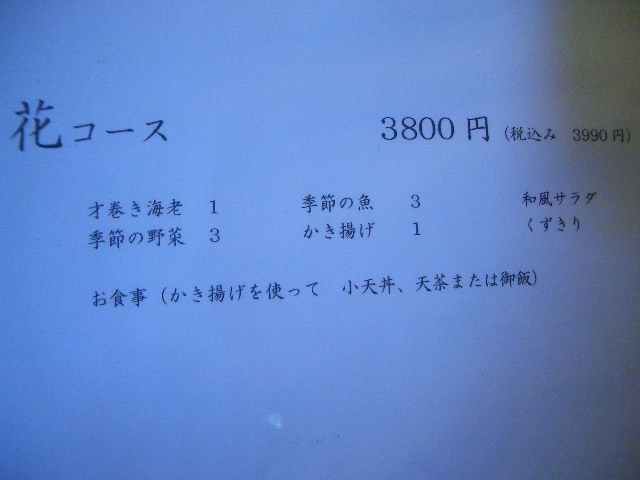 花コース 3800円 (税込み 3990円)
才巻き海老 1 季節の魚 3 和風サラダ
季節の野菜 3 かき揚げ 1 くずきり
お食事(かき揚げを使って 小天丼、天茶または御飯)